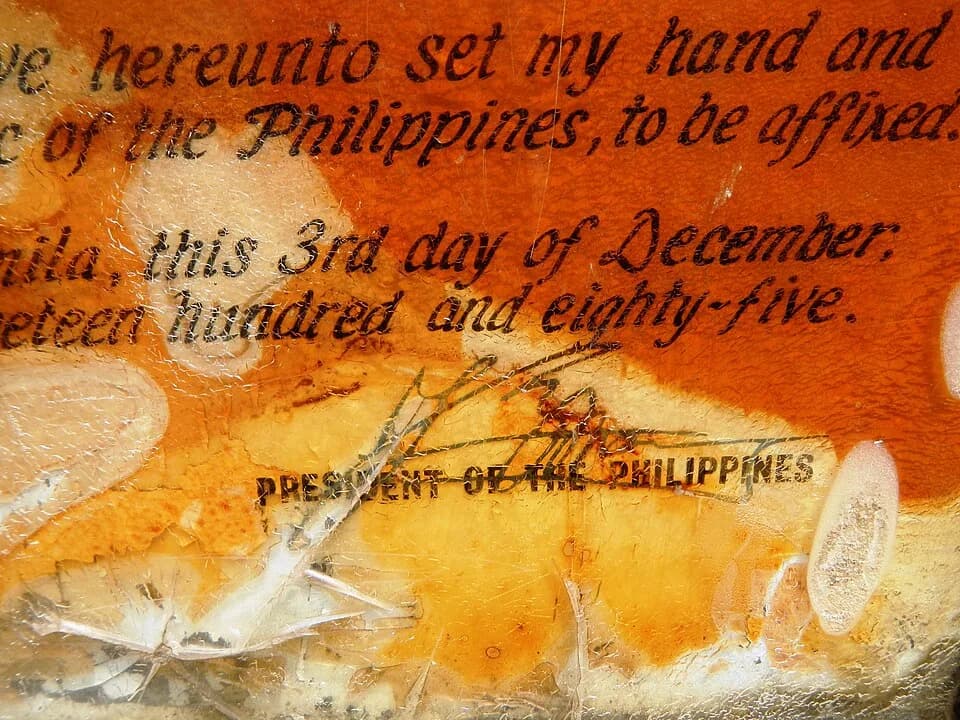 ve hereunto set my hand and
c of the Philippines, to be affixed.
nila, this 3rd day of December,
eteen hundred and eighty-five.
PRESIDENT OF THE PHILIPPINES